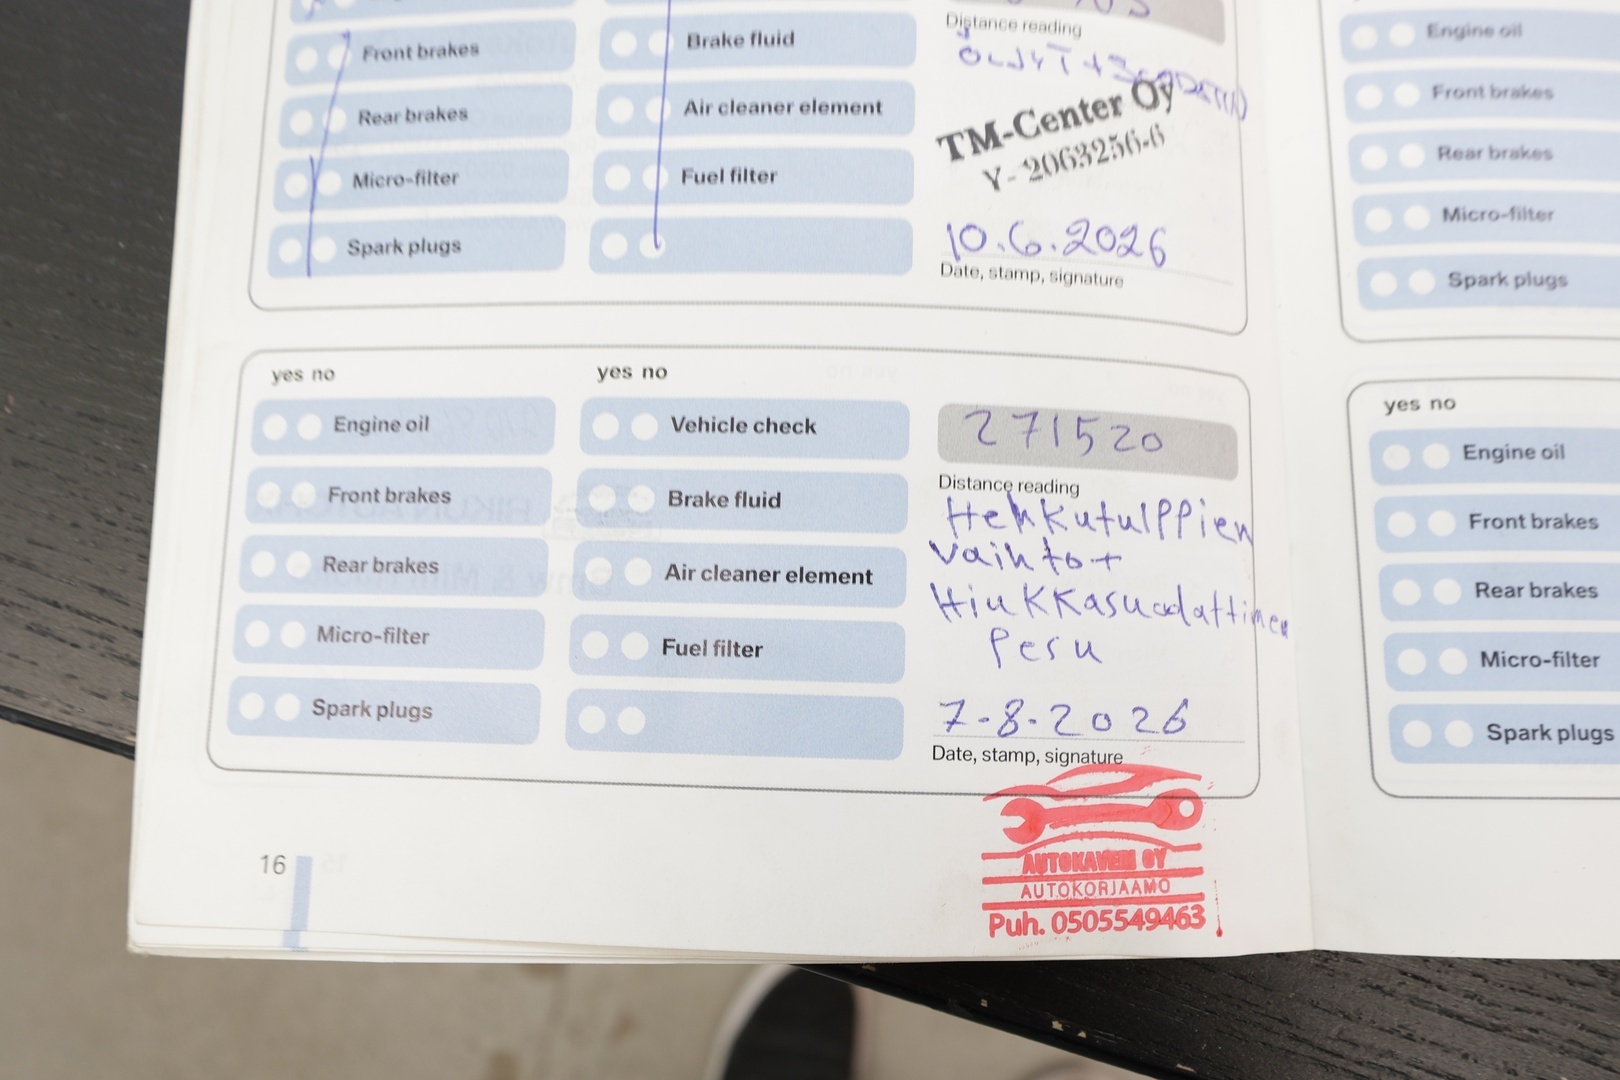 Front brakes
Rear brakes
Micro-filter
Spark plugs
Brake fluid
Air cleaner element
Fuel filter
Distance reading
ÖLJYT +
TM-Center Oy
Y- 2063256-6
10.6.2026
Date, stamp, signature
yes no
Engine oil
Front brakes
Rear brakes
Micro-filter
Spark plugs
yes no
Vehicle check
Brake fluid
Air cleaner element
Fuel filter
271520
Distance reading
Hehkutulppien
vaihto+
Hiukkasuodattimen
Pesu
7-8-2026
Date, stamp, signature
AUTOKAVERI OY
AUTOKORJAAMO
Puh. 0505549463
16
Engine oil
Front brakes
Rear brakes
Micro-filter
Spark plugs
yes no
Engine oil
Front brakes
Rear brakes
Micro-filter
Spark plugs